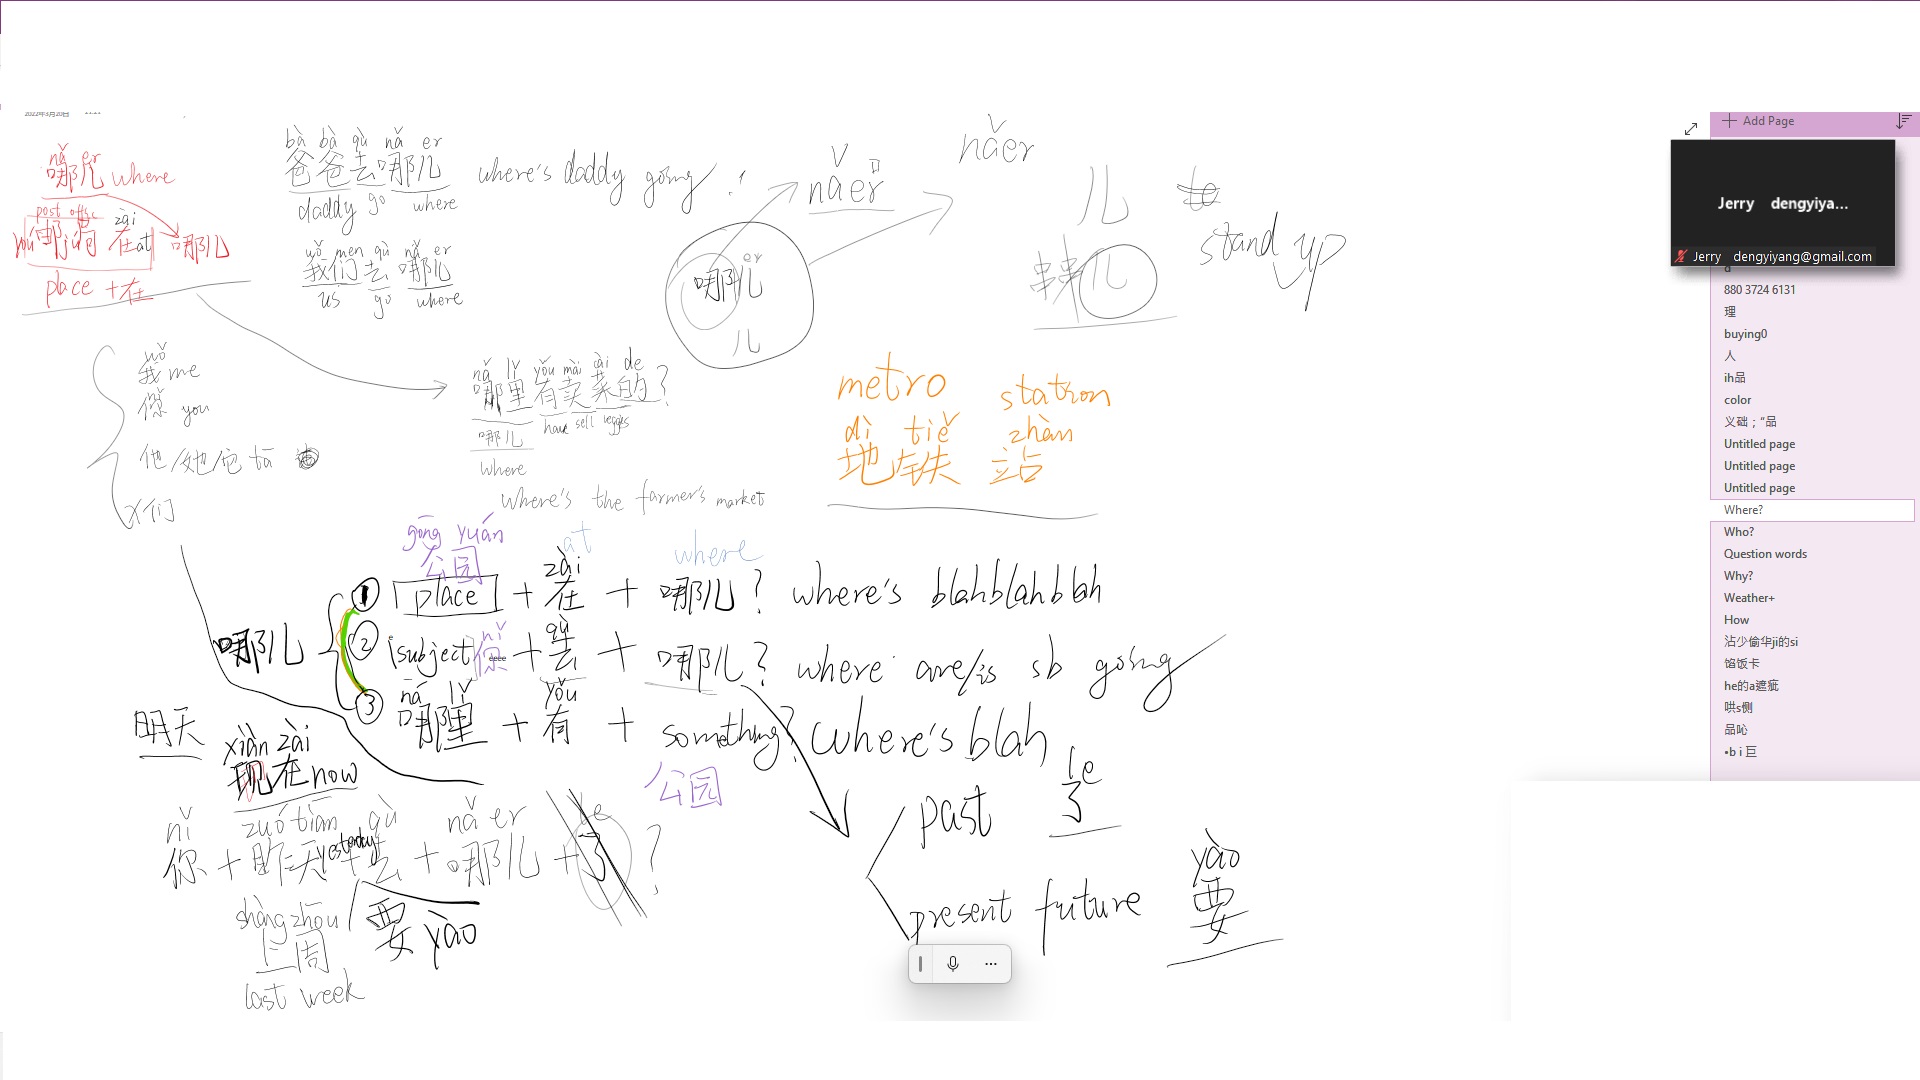 2022年3月20日
nǎ er
哪儿 where
post offic
zài
yóu 邮局 在at 哪儿
place + 在
bà bà qù nǎ er
爸爸去哪儿 where's daddy going
daddy go where
wǒ men qù nǎ er
我们去哪儿
us go where
nǎer
nǎer
er
哪儿
儿
儿
串串儿
stand up
wǒ
我 me
你 you
他/她/它 tā
X们
nǎ lǐ yǒu mài cài de
哪里有卖菜的?
have sell veggies
哪儿
where
where's the farmer's market
metro station
dì tiě zhàn
地铁 站
gōng yuán
公园
at
where
zài
① place + 在 + 哪儿? where's blahblahblah
哪儿
nǐ qù
② subject 你 + 去 + 哪儿? where are/is sb going
nǎ lǐ yǒu
③ 哪里 + 有 + something? where's blah
公园
明天
xiàn zài
现在 now
nǐ zuó tiān qù nǎ er le
你 + 昨天 yesterday + 去 + 哪儿 + 了 ?
shàng zhōu
上周
last week
要 yào
le
past 了
yào
present future 要
Add Page
Jerry dengyiya...
Jerry dengyiyang@gmail.com
d
880 3724 6131
理
buying0
人
ih品
color
义础；“品
Untitled page
Untitled page
Untitled page
Where?
Who?
Question words
Why?
Weather+
How
沾少偷华ji的si
馅饭卡
he的a遮疵
哄s恻
品吣
•b i 巨